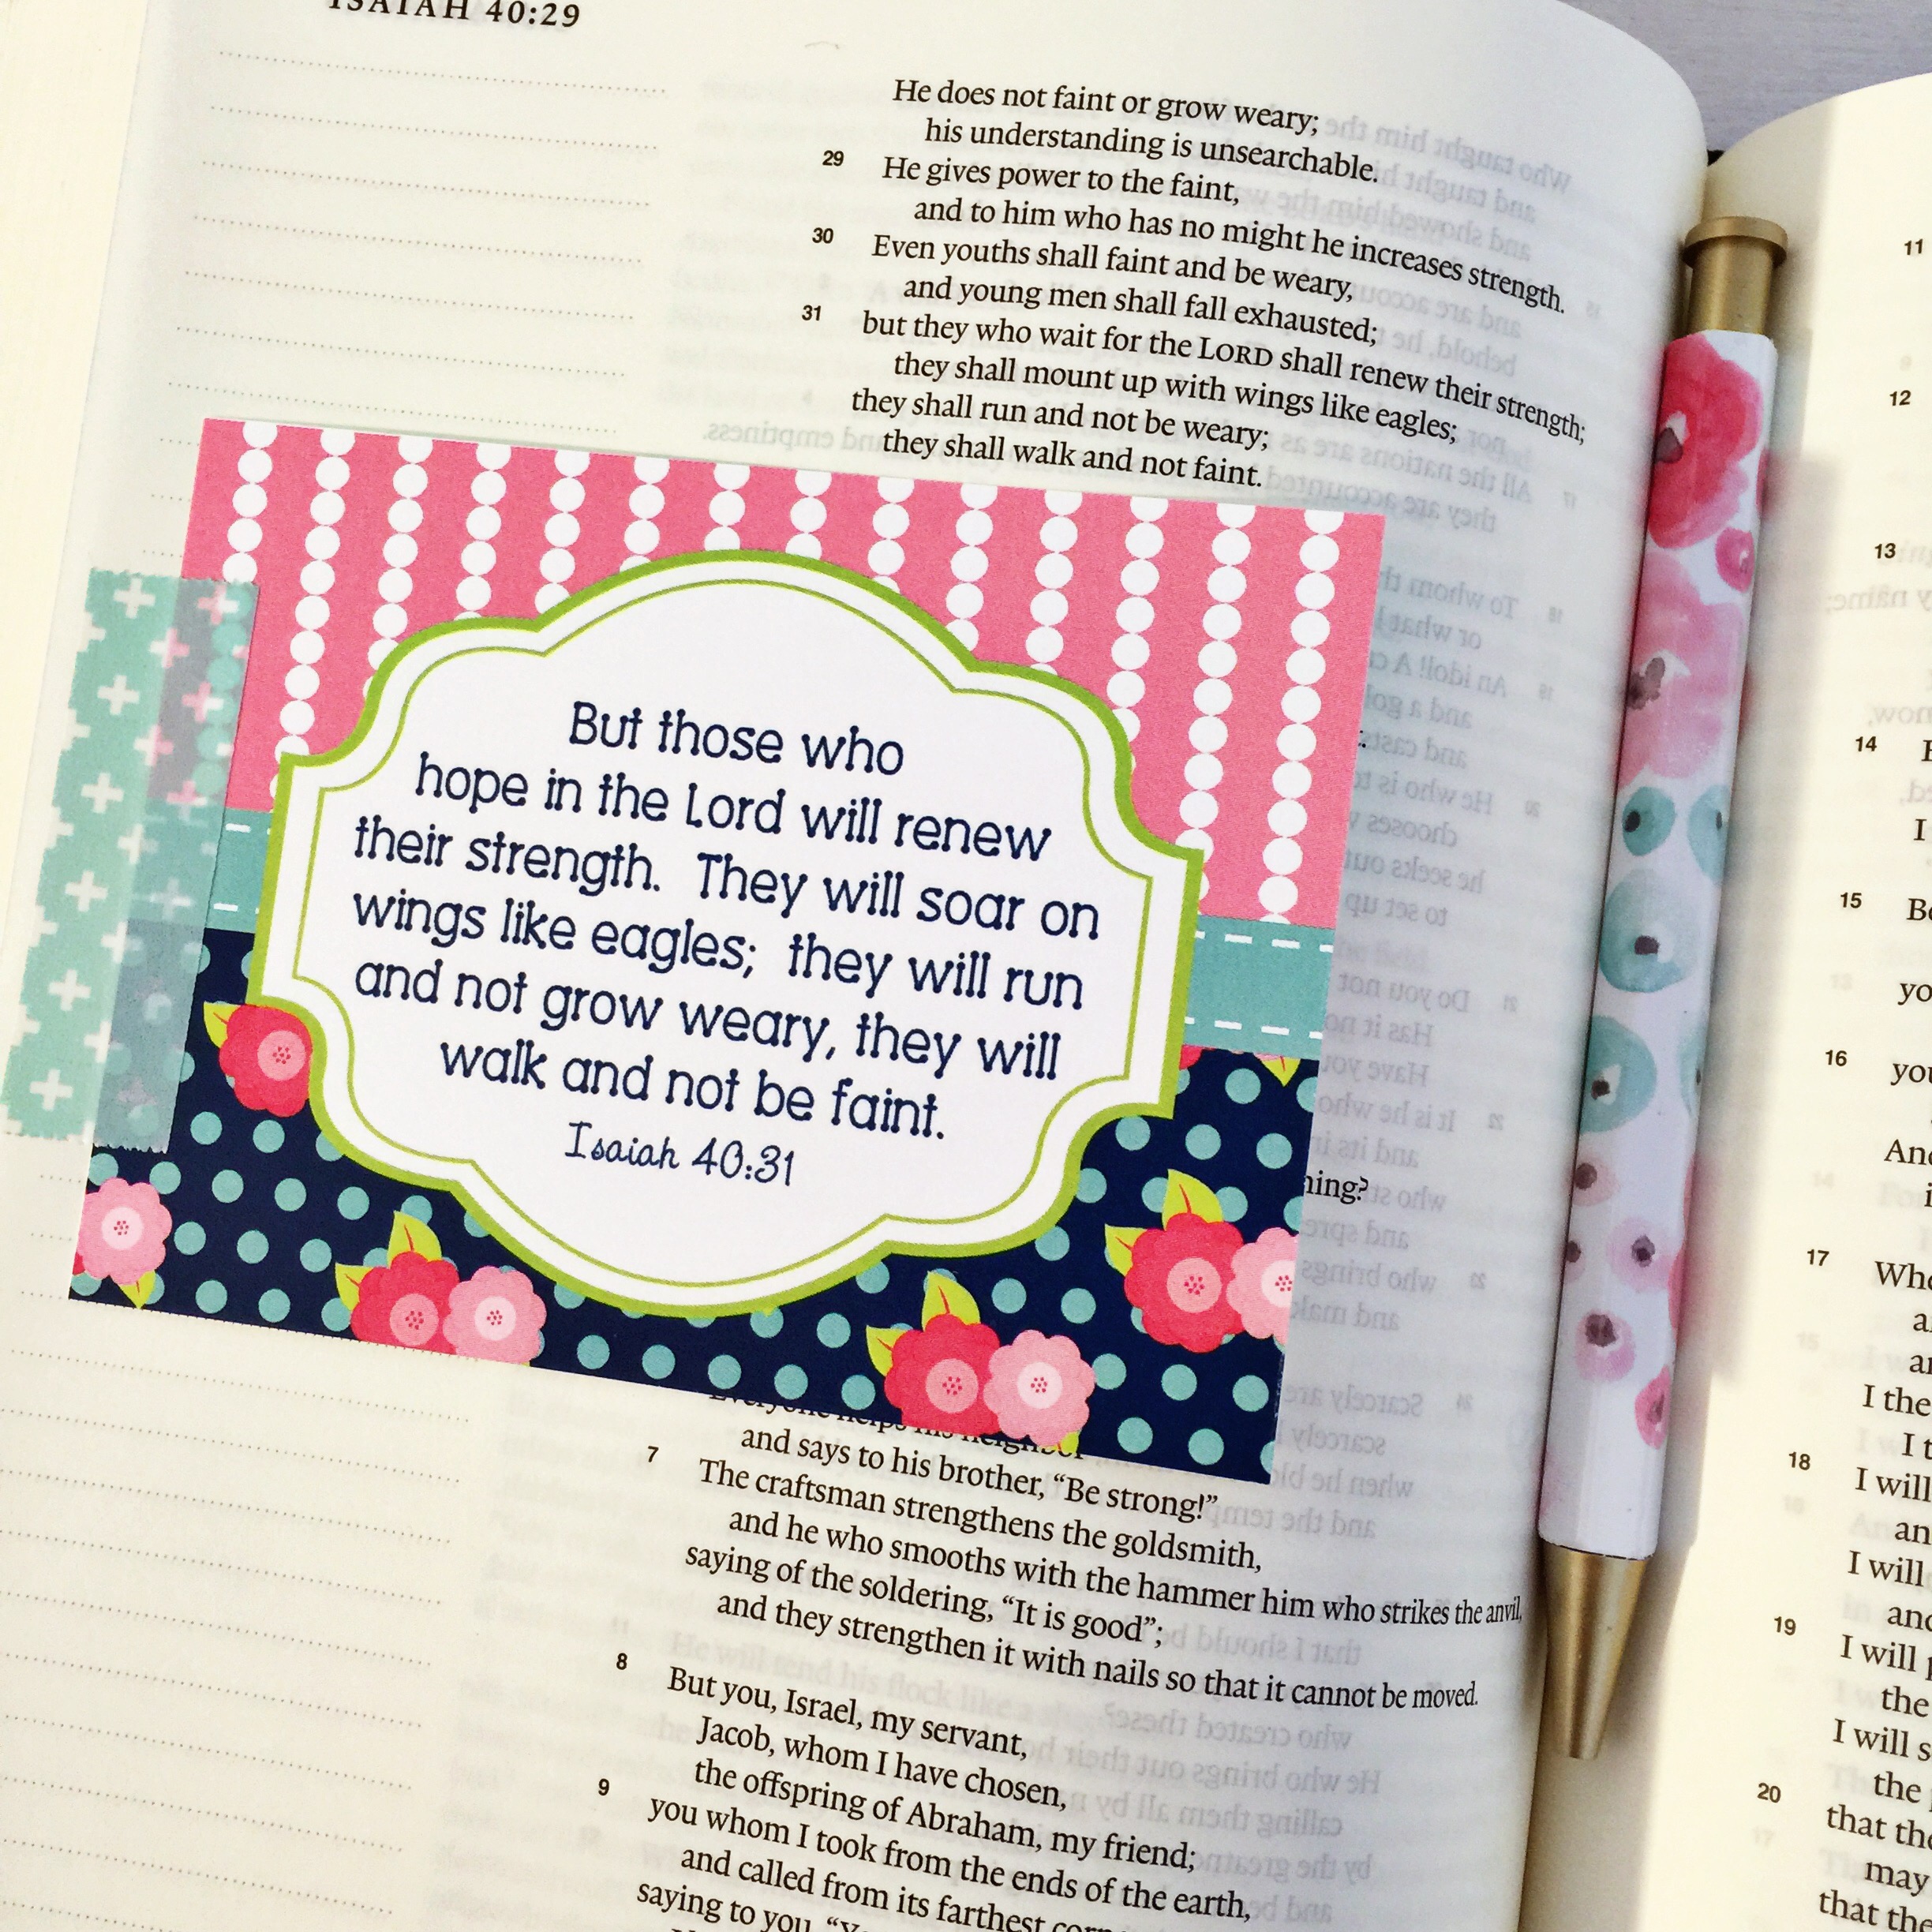 ISAIAH 40:29
He does not faint or grow weary;
his understanding is unsearchable.
29 He gives power to the faint,
and to him who has no might he increases strength.
30 Even youths shall faint and be weary,
and young men shall fall exhausted;
31 but they who wait for the LORD shall renew their strength;
they shall mount up with wings like eagles;
they shall run and not be weary;
they shall walk and not faint.
But those who
hope in the Lord will renew
their strength. They will soar on
wings like eagles; they will run
and not grow weary, they will
walk and not be faint.
Isaiah 40:31
Everyone helps his neighbor
and says to his brother, “Be strong!”
7 The craftsman strengthens the goldsmith,
and he who smooths with the hammer him who strikes the anvil,
saying of the soldering, “It is good”;
and they strengthen it with nails so that it cannot be moved.
8 But you, Israel, my servant,
Jacob, whom I have chosen,
the offspring of Abraham, my friend;
9 you whom I took from the ends of the earth,
and called from its farthest
saying to you,
11
12
13
14
I
15
16
17
I the
18
I will
I will
19
I will
the
I will
the
20
that
may
that